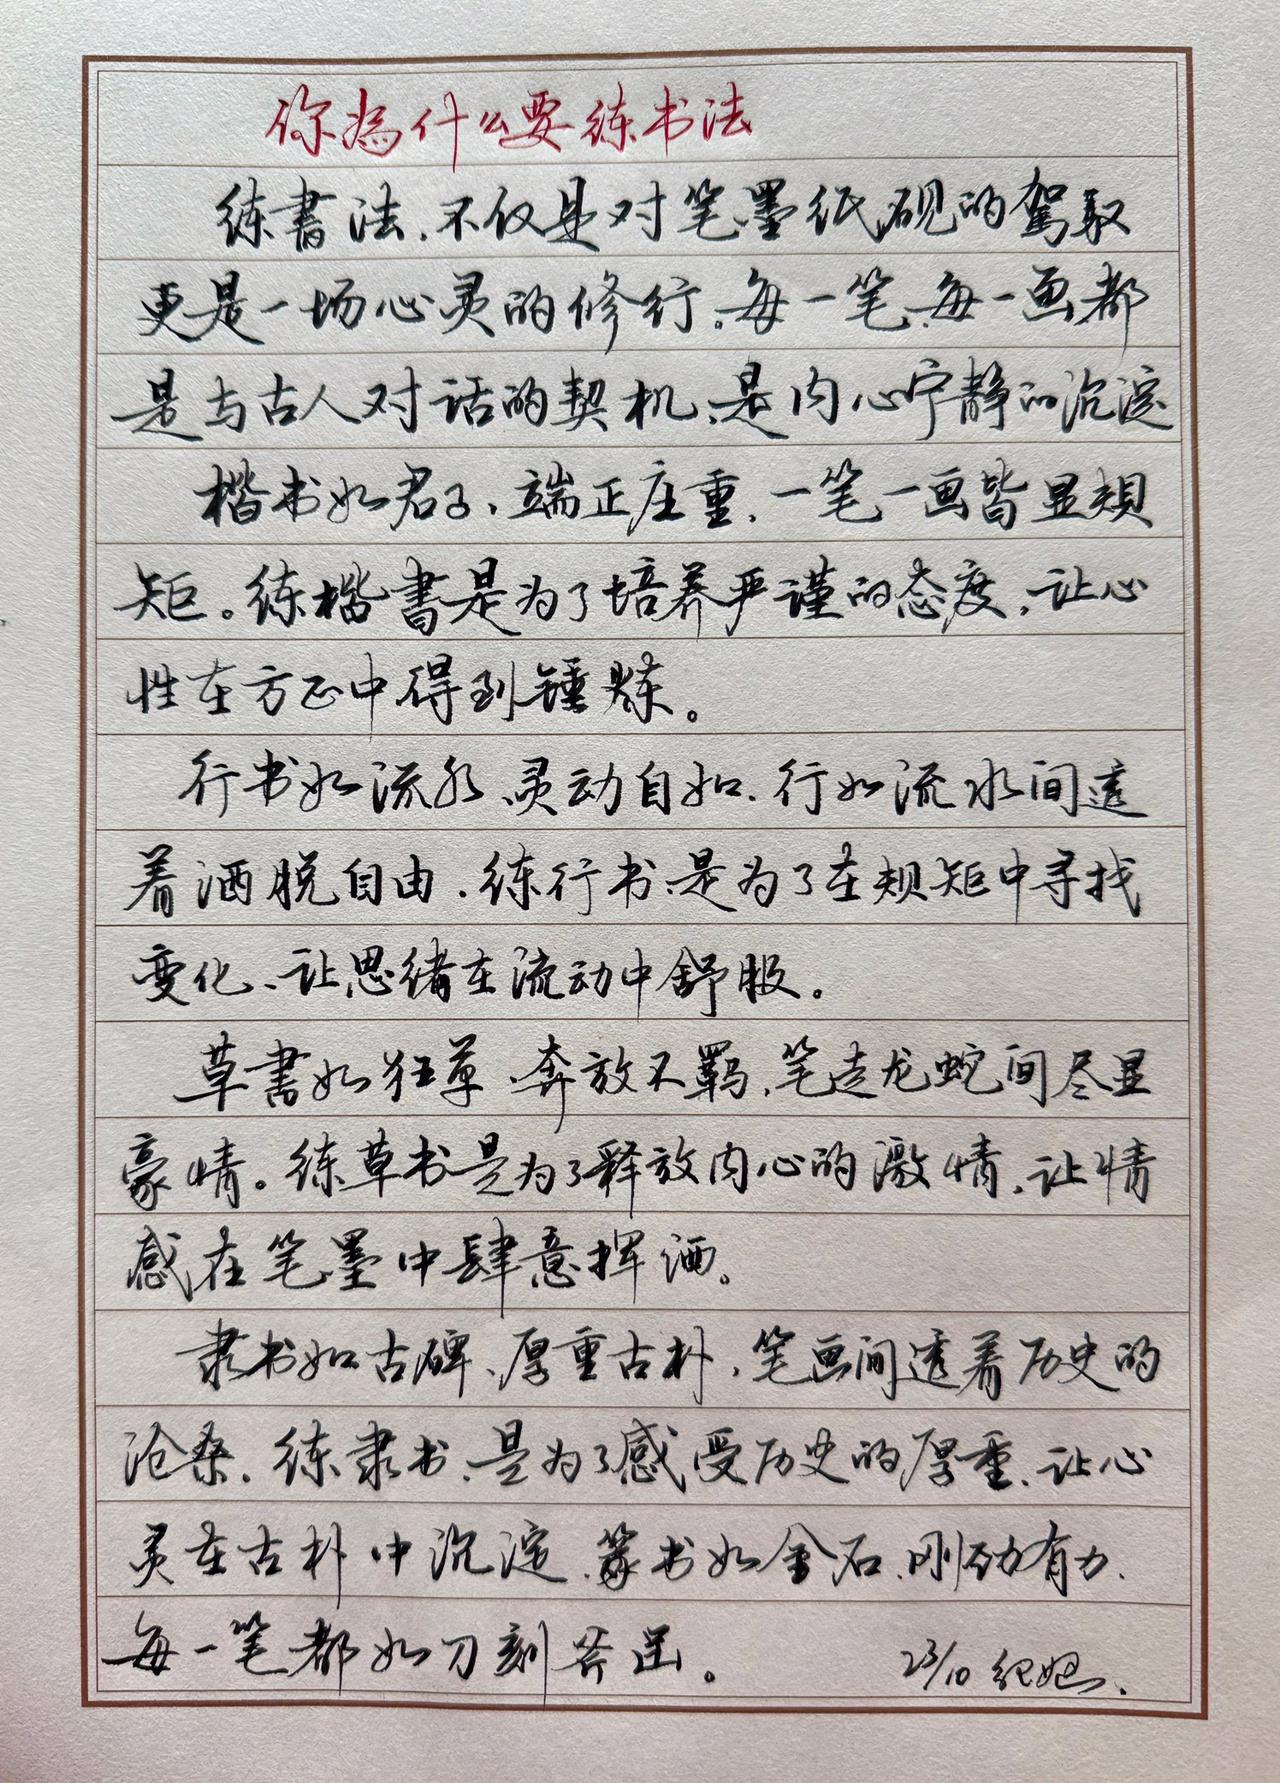 你為什么要练书法
练書法，不仅是对笔墨纸砚的驾驭
更是一场心灵的修行。每一笔、每一画都
是与古人对话的契机、是内心宁静的沉淀
楷书如君子、端正庄重，一笔一画皆显规
矩。练楷書是为了培养严谨的态度，让心
性在方正中得到锤炼。
行书如流水、灵动自如，行如流水间透
着洒脱自由，练行书、是为了在规矩中寻找
变化、让思绪在流动中舒服。
草書如狂草、奔放不羁，笔走龙蛇间尽显
豪情。练草书是为了释放内心的激情，让情
感在笔墨中肆意挥洒。
隶书如古碑、厚重古朴，笔画间透着历史的
沧桑，练隶书、是为了感受历史的厚重、让心
灵在古朴中沉淀、篆书如金石、刚劲有力、
每一笔都如刀刻斧凿。
23/10